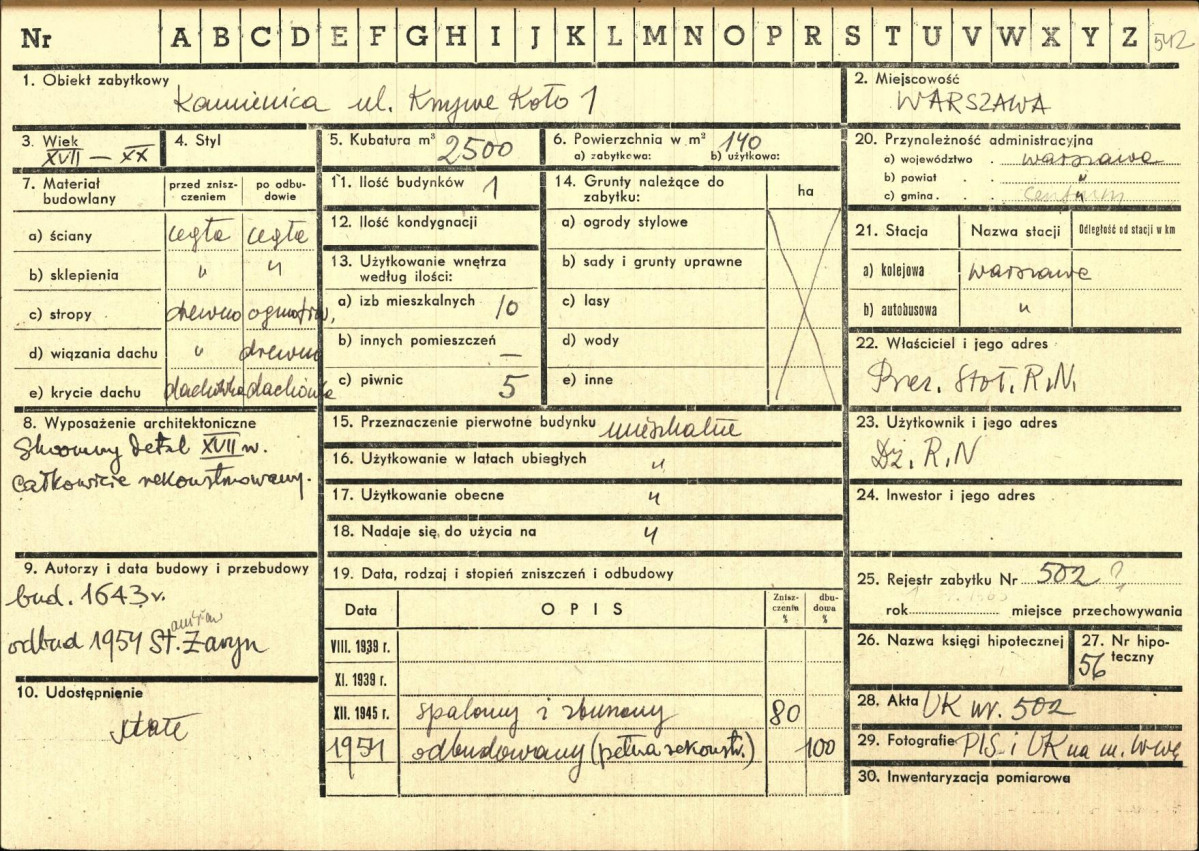 Nr A B C D E F G H I J K L M N O P R S T U V W X Y Z 542
1. Obiekt zabytkowy
Kamienica ul. Krzywe Koło 1
2. Miejscowość
WARSZAWA
3. Wiek
XVII – XX
4. Styl
5. Kubatura m³ 2500
6. Powierzchnia w m² 140
a) zabytkowa: b) użytkowa:
7. Materiał budowlany
przed zniszczeniem
po odbudowie
a) ściany cegła cegła
b) sklepienia " "
c) stropy drewno ogniotrw.
d) wiązania dachu " drewno
e) krycie dachu dachówka dachówka
8. Wyposażenie architektoniczne
Skromny detal XVII w.
całkowicie rekonstruowany.
9. Autorzy i data budowy i przebudowy
bud. 1643 r.
odbud 1954 St. Żaryn
10. Udostępnienie
stałe
11. Ilość budynków 1
12. Ilość kondygnacji
13. Użytkowanie wnętrza
według ilości:
a) izb mieszkalnych 10
b) innych pomieszczeń —
c) piwnic 5
14. Grunty należące do
zabytku:
ha
a) ogrody stylowe
b) sady i grunty uprawne
c) lasy
d) wody
e) inne
15. Przeznaczenie pierwotne budynku mieszkalne
16. Użytkowanie w latach ubiegłych "
17. Użytkowanie obecne "
18. Nadaje się do użycia na "
19. Data, rodzaj i stopień zniszczeń i odbudowy
Data OPIS Zniszczeniu % dbudowa %
VIII. 1939 r.
XI. 1939 r.
XII. 1945 r. spalony i zburzony 80
1954 odbudowany (pełna rekonstr.) 100
20. Przynależność administracyjna
a) województwo . warszawa
b) powiat . . "
c) gmina . . "
centrum
21. Stacja Nazwa stacji Odległość od stacji w km
a) kolejowa warszawa
b) autobusowa "
22. Właściciel i jego adres
Prez. Stoł. R.N.
23. Użytkownik i jego adres
Dz. R.N
24. Inwestor i jego adres
25. Rejestr zabytku Nr 502 ?
rok miejsce przechowywania
26. Nazwa księgi hipotecznej
27. Nr hipoteczny
56
28. Akta UK nr. 502
29. Fotografie PIS i UK na m. W-wę
30. Inwentaryzacja pomiarowa